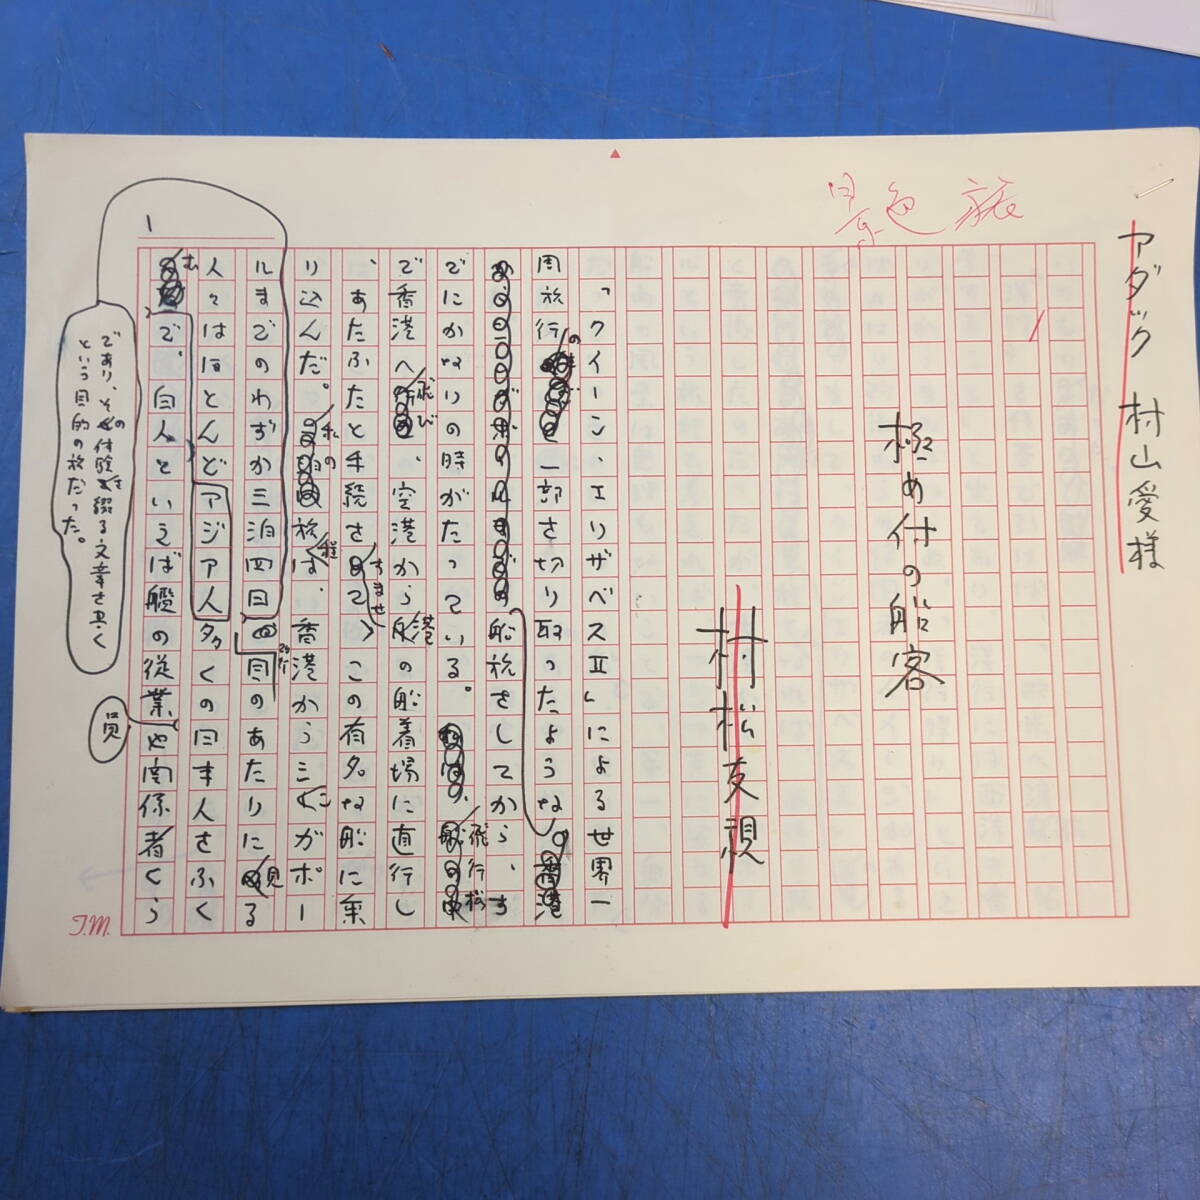 アダック 村山愛様
景色 旅
極め付の船客
村松友視
「クイーン、エリザベスⅡ」による世界一
周旅行のまを一部さ切り取ったような
船旅をしてから、す
でにかなりの時がたっている。飛行机
で香港へ飛び、空港から港の船着場に直行し
、あたふたと手続きすませて、この有名な船に乗
り込んだ。私の旅程は、香港からシンガポー
ルまでのわずか三泊四日
であり、その体験を綴る文章を書く
という目的の旅だった。
見るのあたりに見る
人々はほとんどアジア人
多くの日本人をふく
む
で、白人といえば艦の従業員や関係者くら
1
T.M.